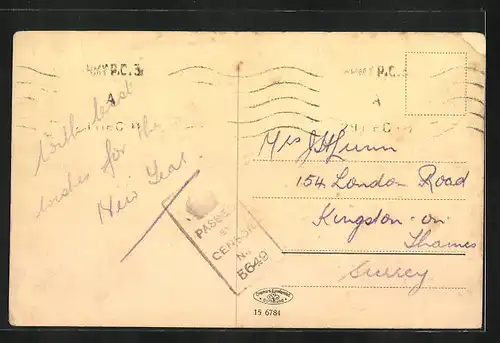 ARMY P.C. 3
A
ARMY P.C.
A
With best
wishes for the
New Year.
PASSED
BY
CENSOR
No.
5649
Mrs J H Lunn
154 London Road
Kingston-on-
Thames
Surrey
15 6784